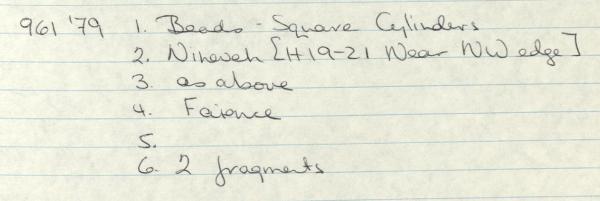 961 '79 1. Beads - Square Cylinders
2. Nineveh [H19-21 Near NW edge]
3. as above
4. Faience
5.
6. 2 fragments